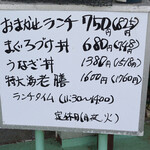 おまかせランチ 750円(825)
まぐろづけ丼 680円(748)
うなぎ丼 1380(1518円)
特大海老膳 1600円(1760円)
ランチタイム (11:30〜14:00)
定休日(火)